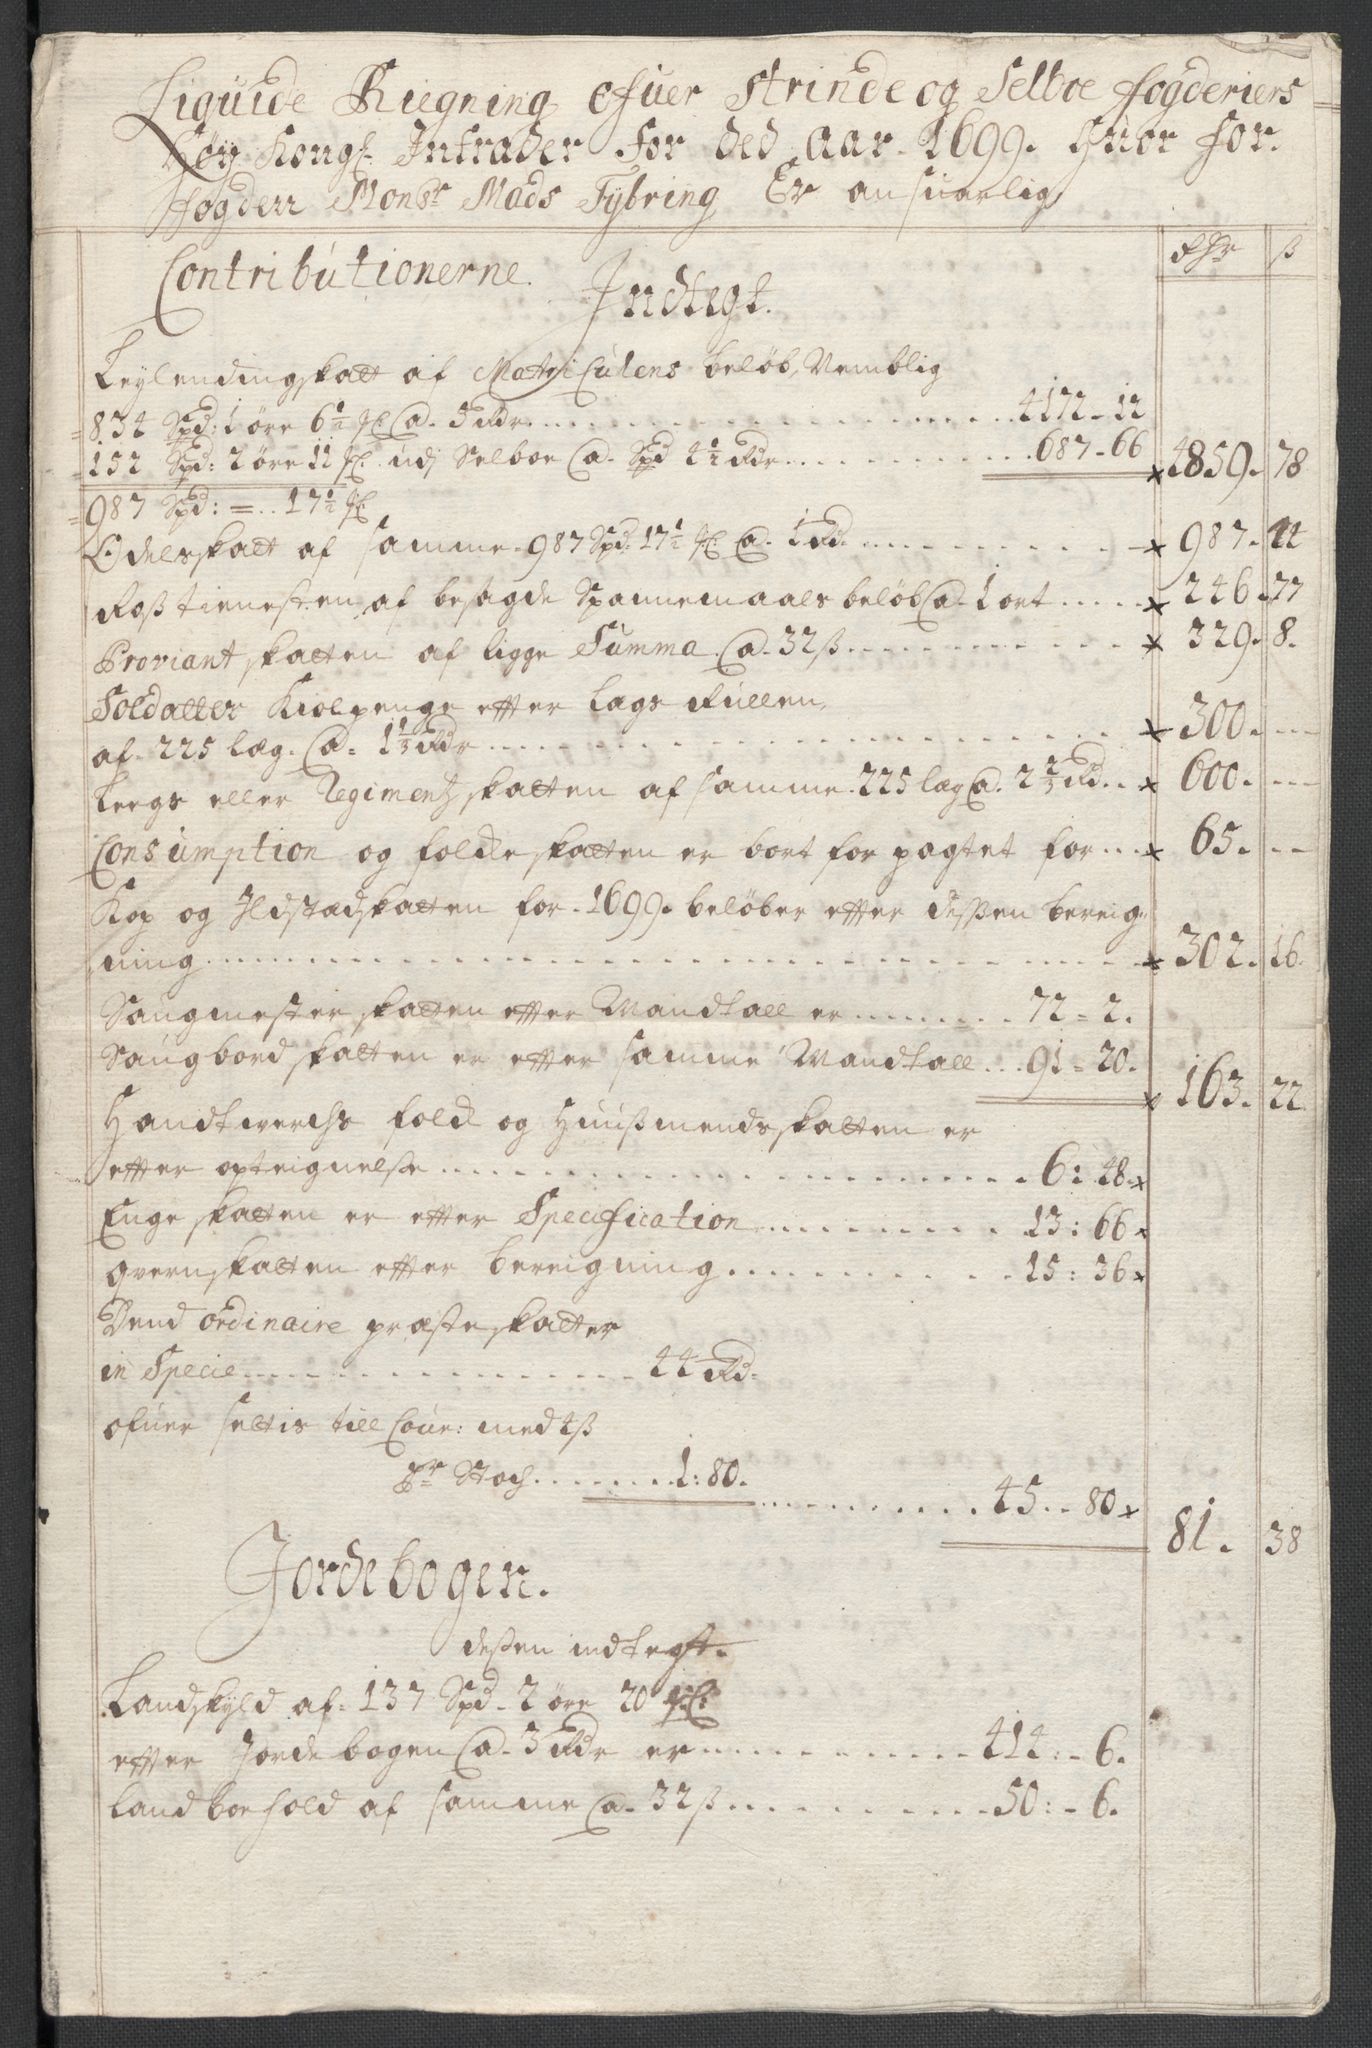 Liquide Riegning ofuer Strinde og Selboe fogderiers
Høy Kongl. Intrader For ded aar 1699. Huor for
fogden Monsr Mads Tybring Er ansuarlig
Rdr ß
Contributionerne. Indtegt.
Leylendingskatt af Matriculens beløb, Nemblig
834 Spd: 1 øre 6½ Ml. Ca. 5 Rdr. 4172 - 12
152 Spd: 2 øre 11 Ml. udj Selboe Ca. Spd 4½ Rdr. 687 - 66 4859. 78
987 Spd: = .. 17½ Ml
Odelsskatt af samme 987 Spd. 17½ Ml. Ca. 1 Rd. 987. 22
Roßtienesten af besagde Spannemaals beløb Ca. 1 ort 246. 77
Proviant skatten af ligge Summa Ca. 32 ß 329. 8.
Soldatter Kiolpenge effter Legs Rullen
af 225 læg. Ca. 1⅓ Rdr 300. --
Leegs eller Regimentzskatten af samme 225 læg Ca. 2⅔ Rd. 600. --
Consumption og folckeskatten er bort for pagtet for 65. --
Kop og Ildstedskatten for 1699. beløber effter dessen bereig-
ning 302. 16.
Saugmester skatten effter Mandtall er 72 - 2.
Saugbord skatten er effter samme Mandtall 91 - 20. 163. 22
Handtwerchs folck og Huußmendsskatten er
effter opteignelse 6: 48
Enge skatten er effter Specification 13: 66
Qvernskatten effter bereigning 15: 36
Dend ordinaire præsteskatter
in Specie 44 Rd.
ofuer settis till Cour: med 4 ß
Pr Stoch 1: 80. 45 .. 80 81. 38
Jordebogen.
deßen indtegt.
Landskyld af 137 Spd. 2 øre 20 Ml.
effter Jordebogen Ca. 3 Rdr er 414: - 6.
Landboehold af samme Ca. 32 ß 50: - 6.